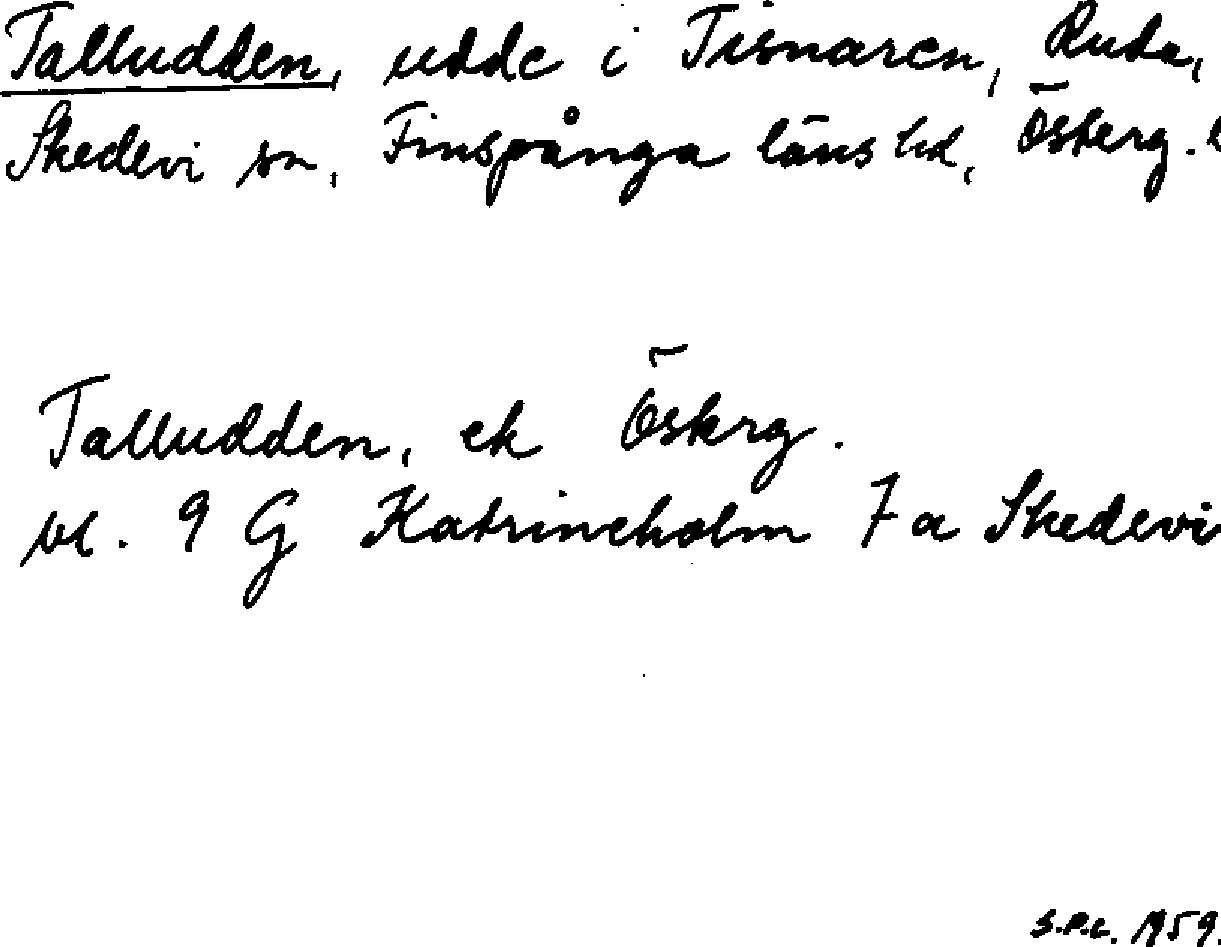 Talludden, udde i Tisnaren, Ruda,
Skedevi sn, Finspånga läns hd, Österg. l
Talludden, ek Östrg.
bl. 9 G Katrineholm 7 a Skedevi
S.P.C. 1959.